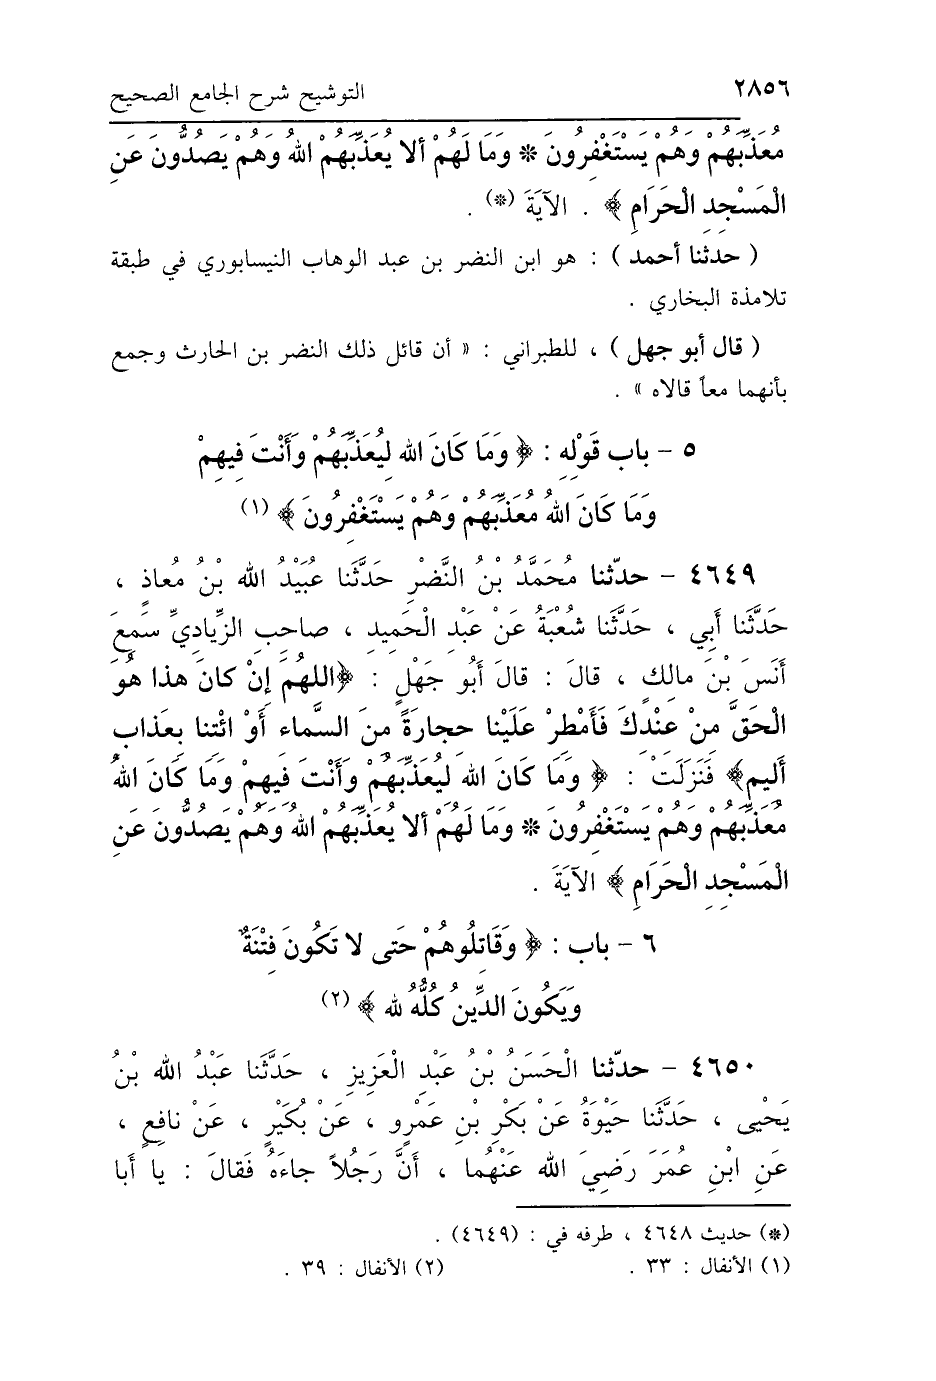 ٢٨٥٦ التوشيح شرح الجامع الصحيح
مُعَذِّبَهُمْ وَهُمْ يَسْتَغْفِرُونَ * وَمَا لَهُمْ أَلا يُعَذِّبَهُمُ اللهُ وَهُمْ يَصُدُّونَ عَنِ
الْمَسْجِدِ الْحَرَامِ ﴾ . الآيَةَ (*) .
( حدثنا أحمد ) : هو ابن النضر بن عبد الوهاب النيسابوري في طبقة
تلامذة البخاري .
( قال أبو جهل ) ، للطبراني : « أن قائل ذلك النضر بن الحارث وجمع
بأنهما معاً قالاه » .
٥ - باب قَوْلِهِ : ﴿ وَمَا كَانَ اللهُ لِيُعَذِّبَهُمْ وَأَنْتَ فِيهِمْ
وَمَا كَانَ اللهُ مُعَذِّبَهُمْ وَهُمْ يَسْتَغْفِرُونَ ﴾ (١)
٤٦٤٩ - حدّثنا مُحَمَّدُ بْنُ النَّضْرِ حَدَّثَنا عُبَيْدُ الله بْنُ مُعاذٍ ،
حَدَّثَنا أَبِي ، حَدَّثَنا شُعْبَةُ عَنْ عَبْدِ الْحَمِيدِ ، صاحِبِ الزِّيادِيِّ سَمِعَ
أَنَسَ بْنَ مالِكٍ ، قالَ : قالَ أَبُو جَهْلٍ : ﴿اللهُمَّ إِنْ كانَ هذا هُوَ
الْحَقَّ مِنْ عِنْدِكَ فَأَمْطِرْ عَلَيْنا حِجارَةً مِنَ السَّماءِ أَوْ ائْتِنا بِعَذابٍ
أَلِيمٍ﴾ فَنَزَلَتْ : ﴿ وَمَا كَانَ اللهُ لِيُعَذِّبَهُمْ وَأَنْتَ فِيهِمْ وَمَا كَانَ اللهُ
مُعَذِّبَهُمْ وَهُمْ يَسْتَغْفِرُونَ * وَمَا لَهُمْ أَلا يُعَذِّبَهُمُ اللهُ وَهُمْ يَصُدُّونَ عَنِ
الْمَسْجِدِ الْحَرَامِ ﴾ الآيَةَ .
٦ - باب : ﴿ وَقَاتِلُوهُمْ حَتى لا تَكُونَ فِتْنَةٌ
وَيَكُونَ الدِّينُ كُلُّهُ لله ﴾ (٢)
٤٦٥٠ - حدّثنا الْحَسَنُ بْنُ عَبْدِ الْعَزِيزِ ، حَدَّثَنا عَبْدُ الله بْنُ
يَحْيى ، حَدَّثَنا حَيْوَةُ عَنْ بَكْرِ بْنِ عَمْرٍو ، عَنْ بُكَيْرٍ ، عَنْ نافِعٍ ،
عَنِ ابْنِ عُمَرَ رَضِيَ الله عَنْهُما ، أَنَّ رَجُلاً جاءَهُ فَقالَ : يا أَبا
(*) حديث ٤٦٤٨ ، طرفه في : (٤٦٤٩) .
(١) الأنفال : ٣٣ . (٢) الأنفال : ٣٩ .